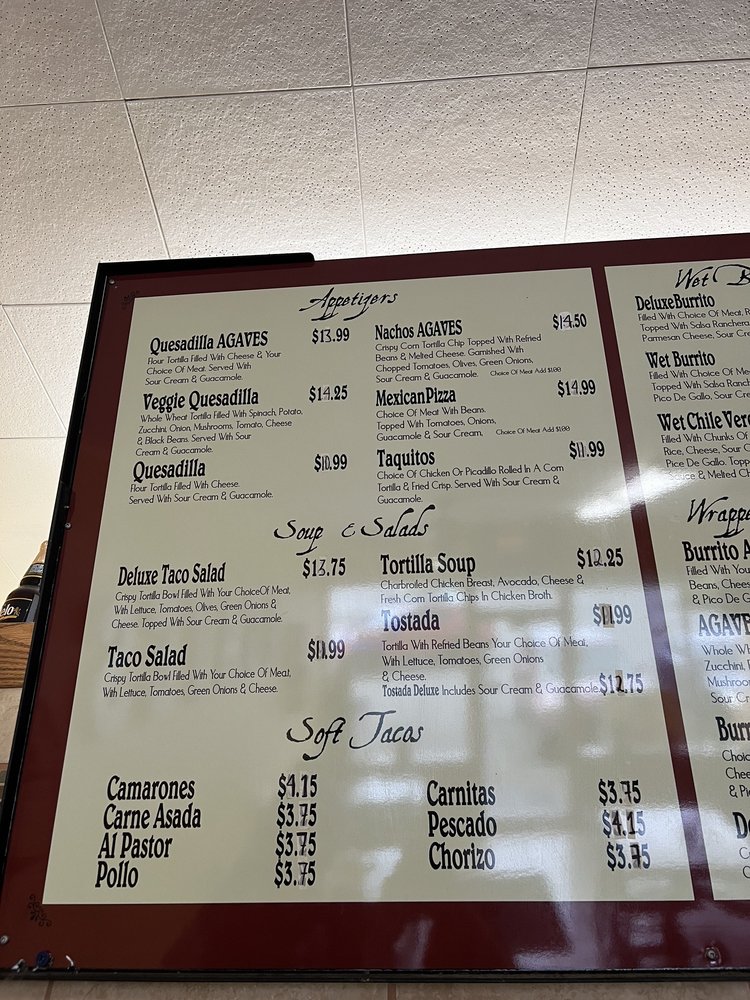 Appetizers
Quesadilla AGAVES $13.99
Flour Tortilla Filled With Cheese & Your
Choice Of Meat. Served With
Sour Cream & Guacamole.
Veggie Quesadilla $14.25
Whole Wheat Tortilla Filled With Spinach, Potato,
Zucchini, Onion, Mushrooms, Tomato, Cheese
& Black Beans. Served With Sour
Cream & Guacamole.
Quesadilla $10.99
Flour Tortilla Filled With Cheese.
Served With Sour Cream & Guacamole.
Nachos AGAVES $14.50
Crispy Corn Tortilla Chip Topped With Refried
Beans & Melted Cheese. Garnished With
Chopped Tomatoes, Olives, Green Onions,
Sour Cream & Guacamole. Choice Of Meat Add $1.00
Mexican Pizza $14.99
Choice Of Meat With Beans.
Topped With Tomatoes, Onions,
Guacamole & Sour Cream. Choice Of Meat Add $1.00
Taquitos $11.99
Choice Of Chicken Or Picadillo Rolled In A Corn
Tortilla & Fried Crisp. Served With Sour Cream &
Guacamole.
Soup & Salads
Deluxe Taco Salad $13.75
Crispy Tortilla Bowl Filled With Your Choice Of Meat,
With Lettuce, Tomatoes, Olives, Green Onions &
Cheese. Topped With Sour Cream & Guacamole.
Taco Salad $11.99
Crispy Tortilla Bowl Filled With Your Choice Of Meat,
With Lettuce, Tomatoes, Green Onions & Cheese.
Tortilla Soup $12.25
Charbroiled Chicken Breast, Avocado, Cheese &
Fresh Corn Tortilla Chips In Chicken Broth.
Tostada $11.99
Tortilla With Refried Beans Your Choice Of Meat,
With Lettuce, Tomatoes, Green Onions
& Cheese.
Tostada Deluxe Includes Sour Cream & Guacamole $12.75
Soft Tacos
Camarones $4.15
Carne Asada $3.75
Al Pastor $3.75
Pollo $3.75
Carnitas $3.75
Pescado $4.15
Chorizo $3.75
Wet B
Deluxe Burrito
Filled With Choice Of Meat, R
Topped With Salsa Ranchera
Parmesan Cheese, Sour Cre
Wet Burrito
Filled With Choice Of Me
Topped With Salsa Ranch
Pico De Gallo, Sour Cre
Wet Chile Verd
Filled With Chunks Of
Rice, Cheese, Sour C
Pice De Gallo. Topp
Sauce & Melted Ch
Wrappe
Burrito A
Filled With You
Beans, Chees
& Pico De G
AGAVE
Whole Wh
Zucchini,
Mushroom
Sour C
Burr
Choic
Chee
& Pi
De